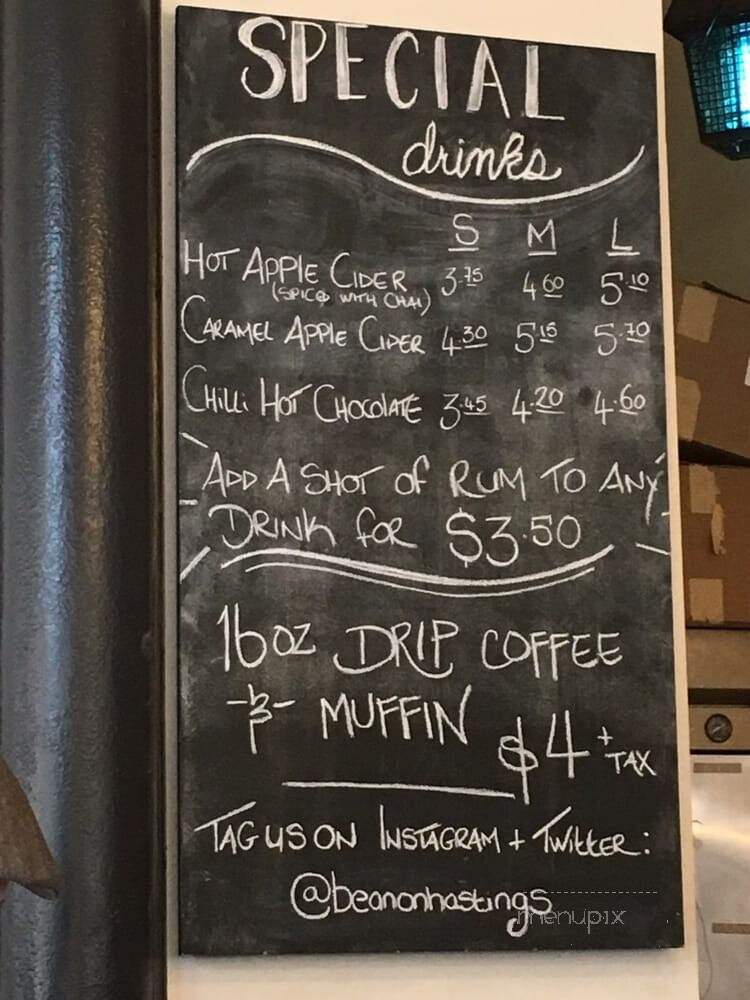 SPECIAL
drinks
S M L
HOT APPLE CIDER 3.75 4.60 5.10
(SPICED WITH CHAI)
CARAMEL APPLE CIDER 4.30 5.15 5.70
CHILLI HOT CHOCOLATE 3.45 4.20 4.60
ADD A SHOT OF RUM TO ANY
DRINK FOR $3.50
16oz DRIP COFFEE
-&- MUFFIN
$4 + TAX
TAG US ON INSTAGRAM + TWITTER:
@beanonhastings
menupix